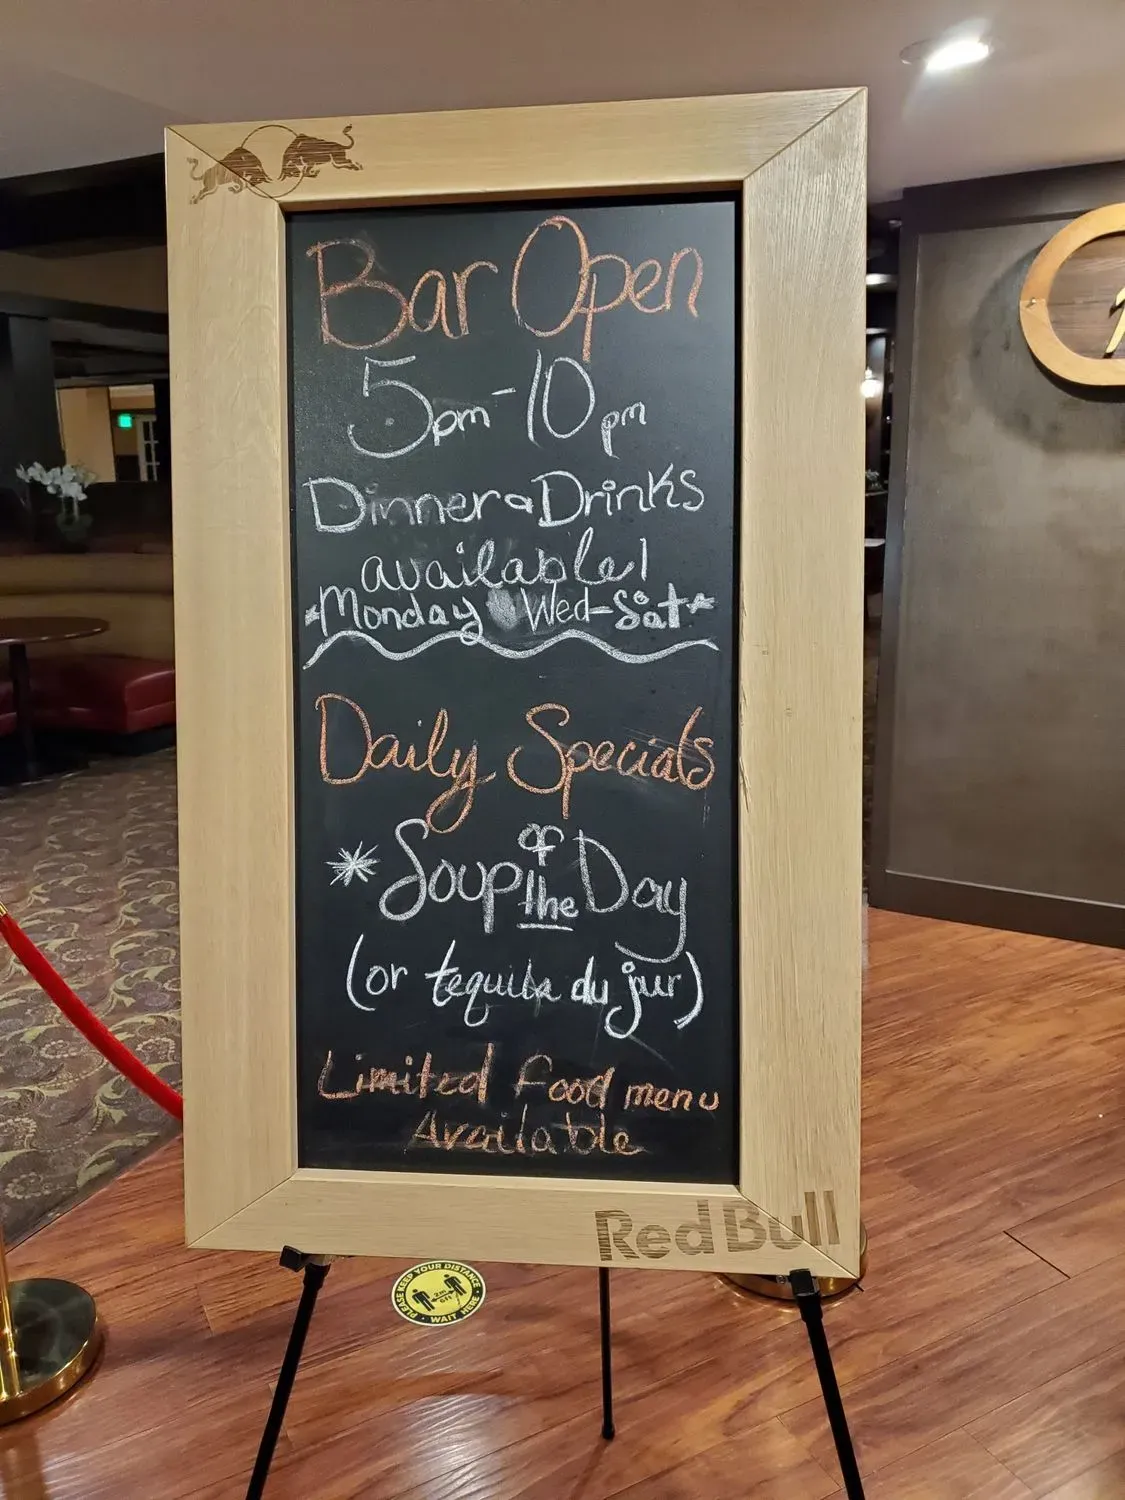 Bar Open
5pm-10pm
Dinner & Drinks
available!
*Monday Wed-Sat*
Daily Specials
* Soup of the Day
(or tequila du jur)
Limited food menu
Available
Red Bull
PLEASE KEEP YOUR DISTANCE
2m
6FT
WAIT HERE